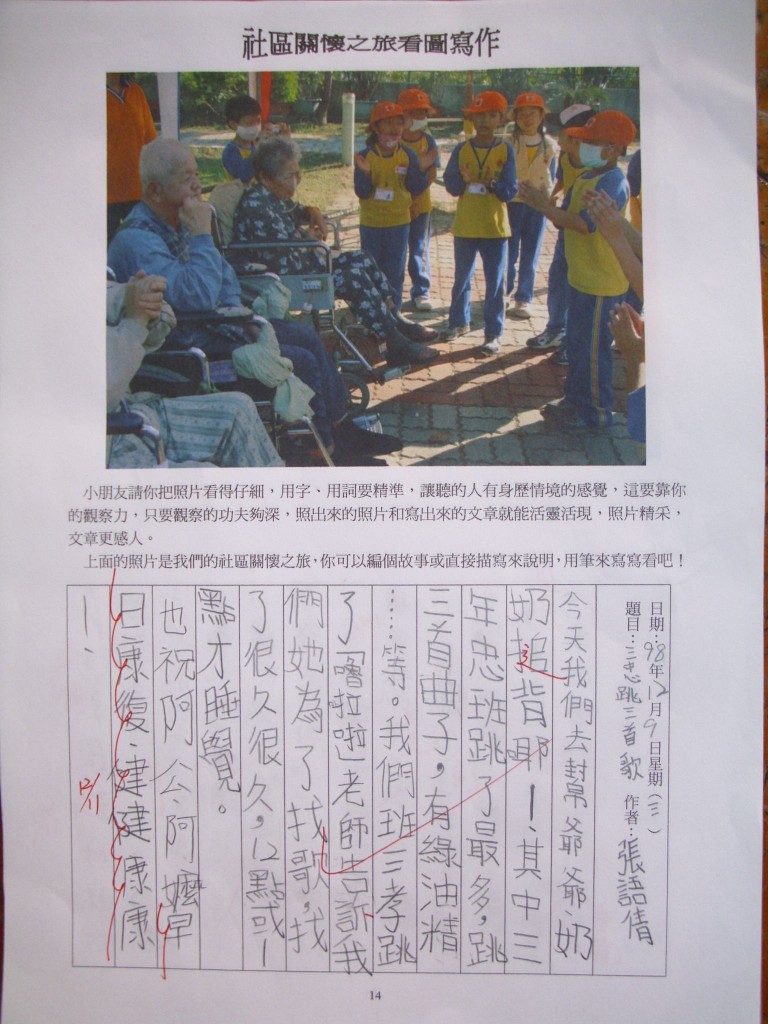 社區關懷之旅看圖寫作
小朋友請你把照片看得仔細，用字、用詞要精準，讓聽的人有身歷情境的感覺，這要靠你
的觀察力，只要觀察的功夫夠深，照出來的照片和寫出來的文章就能活靈活現，照片精采，
文章更感人。
上面的照片是我們的社區關懷之旅，你可以編個故事或直接描寫來說明，用筆來寫寫看吧！
日期：98年12月9日星期（三）
題目：三忠跳三首歌 作者：張語倩
今天我們去幫爺爺、奶
奶搥背耶！、其中三
年忠班跳了最多，跳
三首曲子，有綠油精
……等。我們班三孝跳
了「嚕啦啦」老師告訴我
們她為了找歌，找
了很久很久，12點或1
點才睡覺。
也祝阿公、阿嬤早
日康復、健健康康
！、
12/11
14